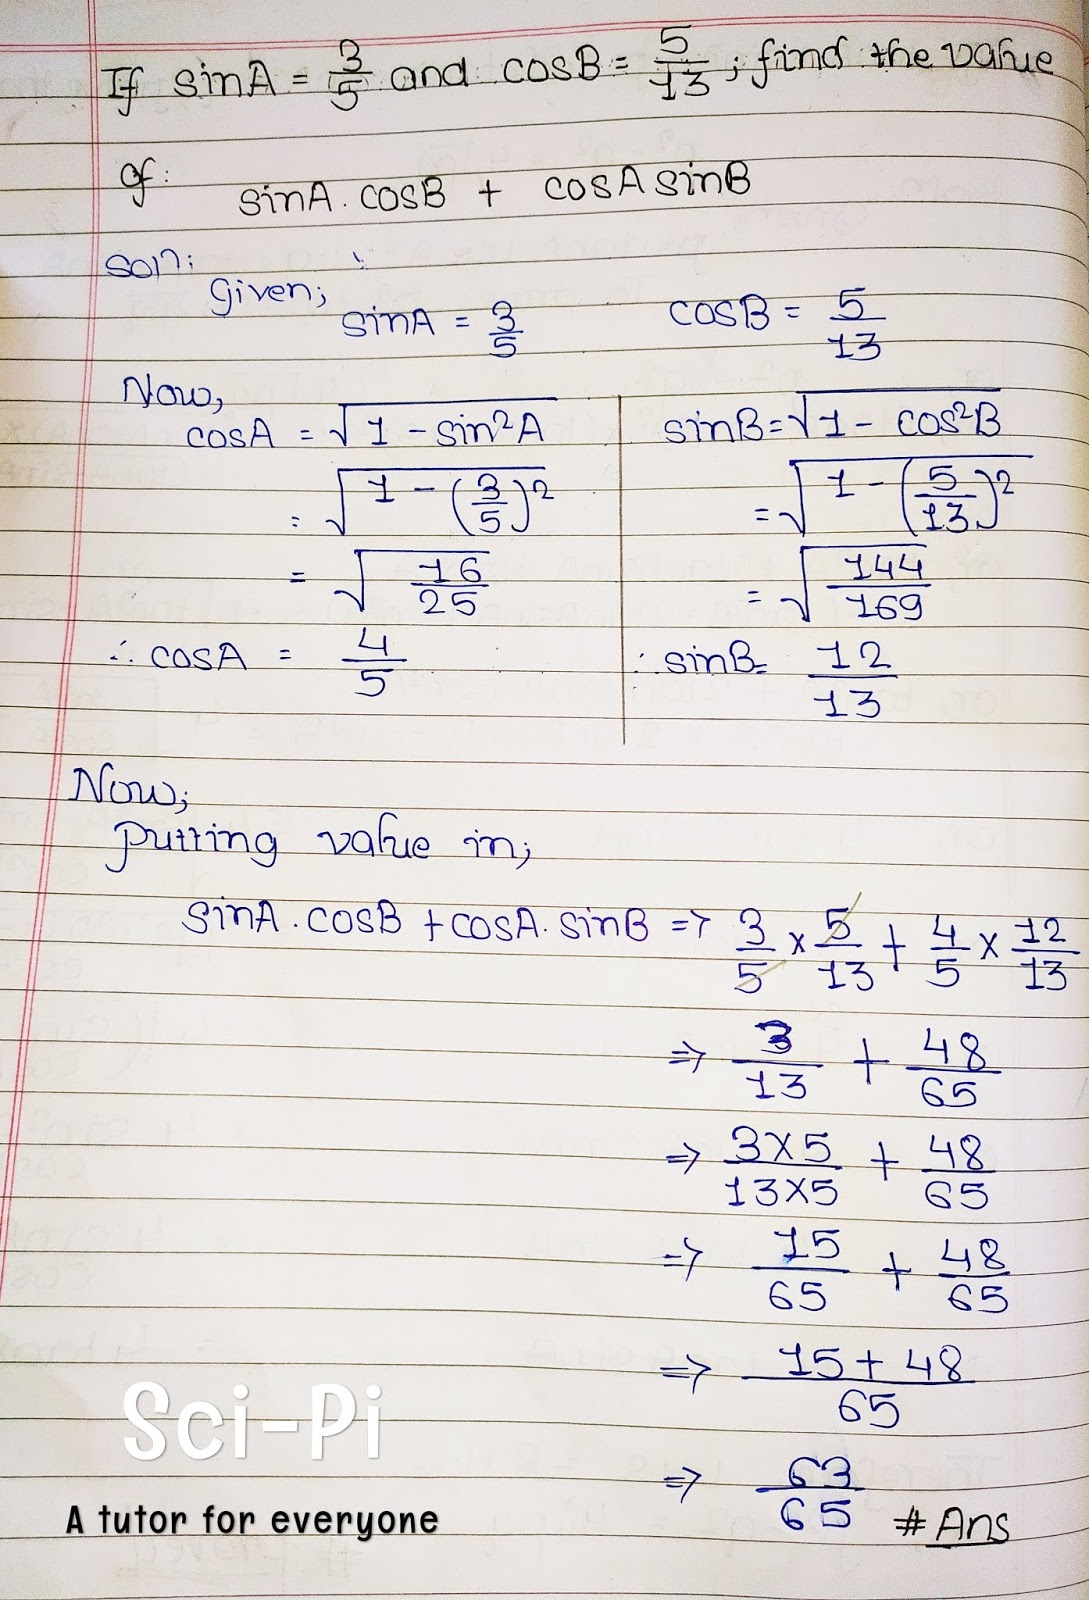 If sinA = 3/5 and cosB = 5/13; find the value
of:
sinA . cosB + cosA sinB
Soln:
Given;
sinA = 3/5    cosB = 5/13
Now,
cosA = √(1 - sin²A)    sinB = √(1 - cos²B)
= √(1 - (3/5)²)    = √(1 - (5/13)²)
= √(16/25)    = √(144/169)
∴ cosA = 4/5    ∴ sinB = 12/13
Now;
putting value in;
sinA . cosB + cosA . sinB => 3/5 × 5/13 + 4/5 × 12/13
=> 3/13 + 48/65
=> 3×5/13×5 + 48/65
=> 15/65 + 48/65
=> 15 + 48/65
=> 63/65 # Ans
Sci-Pi
A tutor for everyone